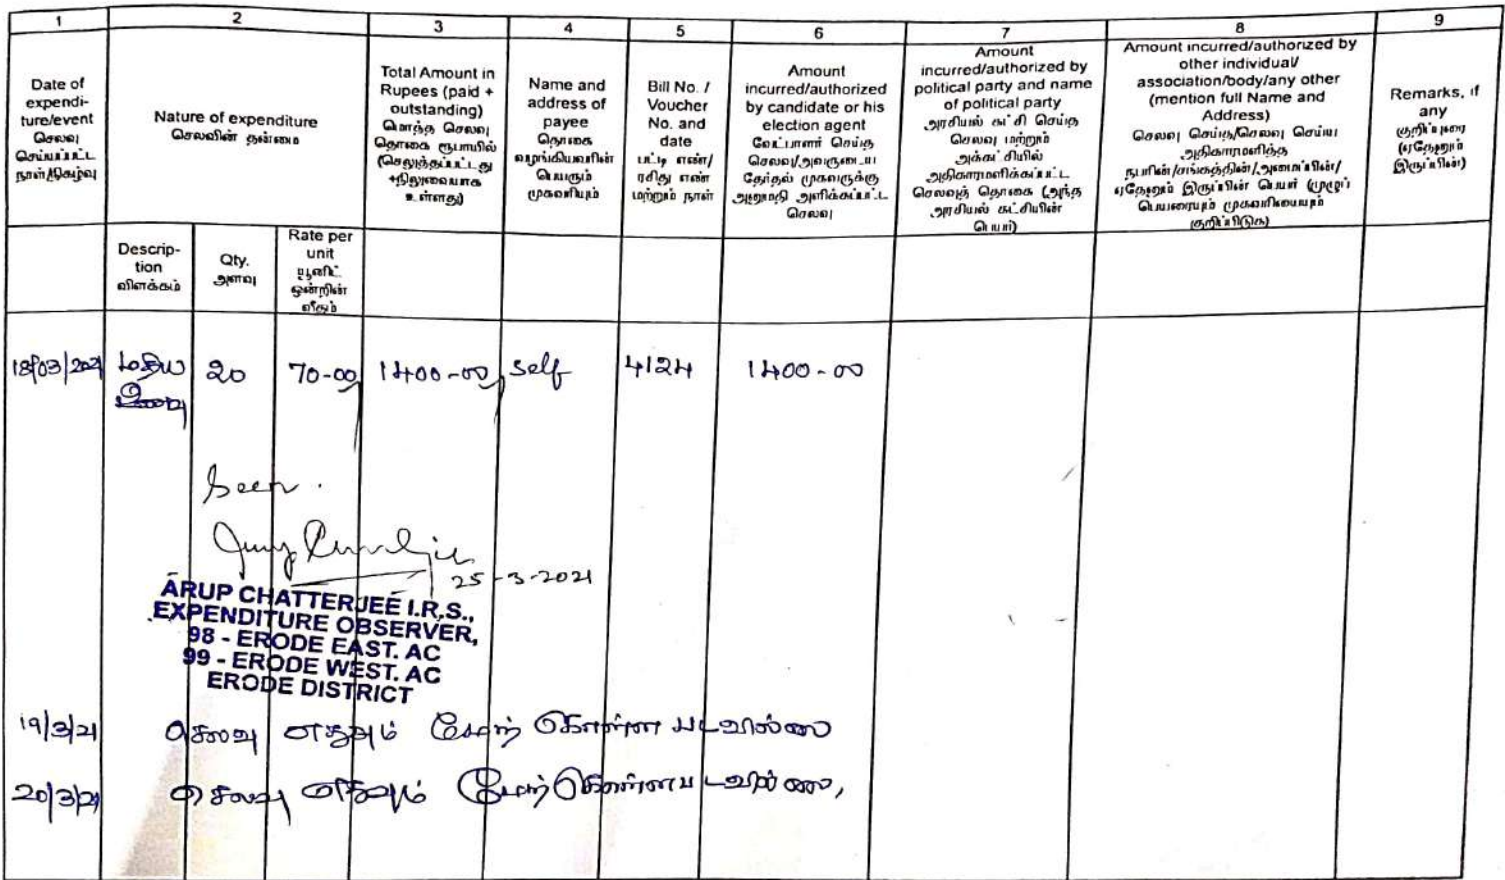 1 2 3 4 5 6 7 8 9
Date of
expendi-
ture/event
செலவு
செய்யப்பட்ட
நாள்/நிகழ்வு
Nature of expenditure
செலவின் தன்மை
Total Amount in
Rupees (paid +
outstanding)
மொத்த செலவு
தொகை ரூபாயில்
(செலுத்தப்பட்டது
+நிலுவையாக
உள்ளது)
Name and
address of
payee
தொகை
வழங்கியவரின்
பெயரும்
முகவரியும்
Bill No. /
Voucher
No. and
date
பட்டி எண்/
ரசிது எண்
மற்றும் நாள்
Amount
incurred/authorized
by candidate or his
election agent
வேட்பாளர் செய்த
செலவு/அவருடைய
தேர்தல் முகவருக்கு
அனுமதி அளிக்கப்பட்ட
செலவு
Amount
incurred/authorized by
political party and name
of political party
அரசியல் கட்சி செய்த
செலவு மற்றும்
அக்கட்சியில்
அதிகாரமளிக்கப்பட்ட
செலவுத் தொகை (அந்த
அரசியல் கட்சியின்
பெயர்)
Amount incurred/authorized by
other individual/
association/body/any other
(mention full Name and
Address)
செலவு செய்த/செலவு செய்ய
அதிகாரமளித்த
நபரின்/சங்கத்தின்/அமைப்பின்/
ஏதேனும் இருப்பின் பெயர் (முழுப்
பெயரையும் முகவரியையும்
குறிப்பிடுக)
Remarks, if
any
குறிப்புரை
(ஏதேனும்
இருப்பின்)
Descrip-
tion
விளக்கம்
Qty.
அளவு
Rate per
unit
யூனிட்
ஒன்றின்
வீதம்
18/03/2021 மதிய 20 70-00 1400-00 self 4124 1400-00
உணவு
Seen.
25-3-2021
ARUP CHATTERJEE I.R.S.,
EXPENDITURE OBSERVER,
98 - ERODE EAST. AC
99 - ERODE WEST. AC
ERODE DISTRICT
19/3/21 செலவு எதுவும் மேற் கொள்ள படவில்லை
20/3/21 செலவு எதுவும் மேற்கொள்ளபடவில்லை,